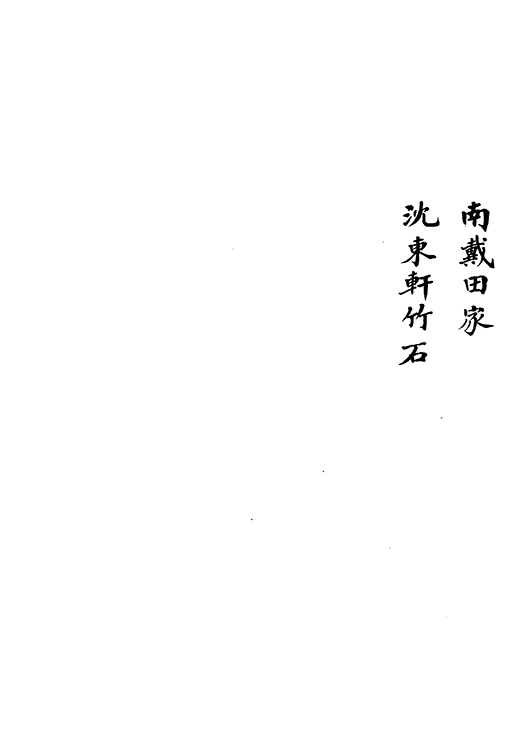 南戴田家
沈東軒竹石